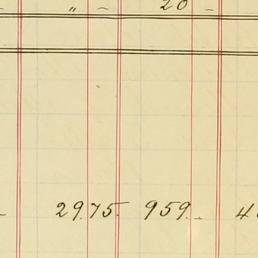 " - 20 -
- 29.75. 959.-